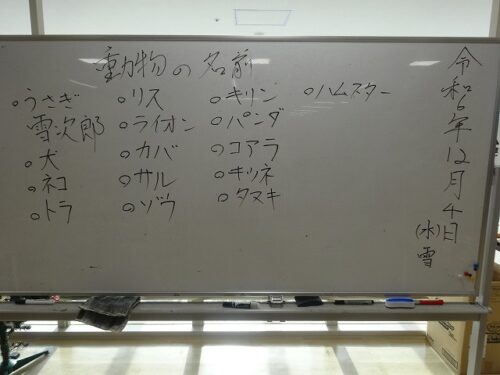 動物の名前
○うさぎ
雪次郎
○犬
○ネコ
○トラ
○リス
○ライオン
○カバ
○サル
○ゾウ
○キリン
○パンダ
○コアラ
○キツネ
○タヌキ
○ハムスター
令和6年12月4日
(水)雪